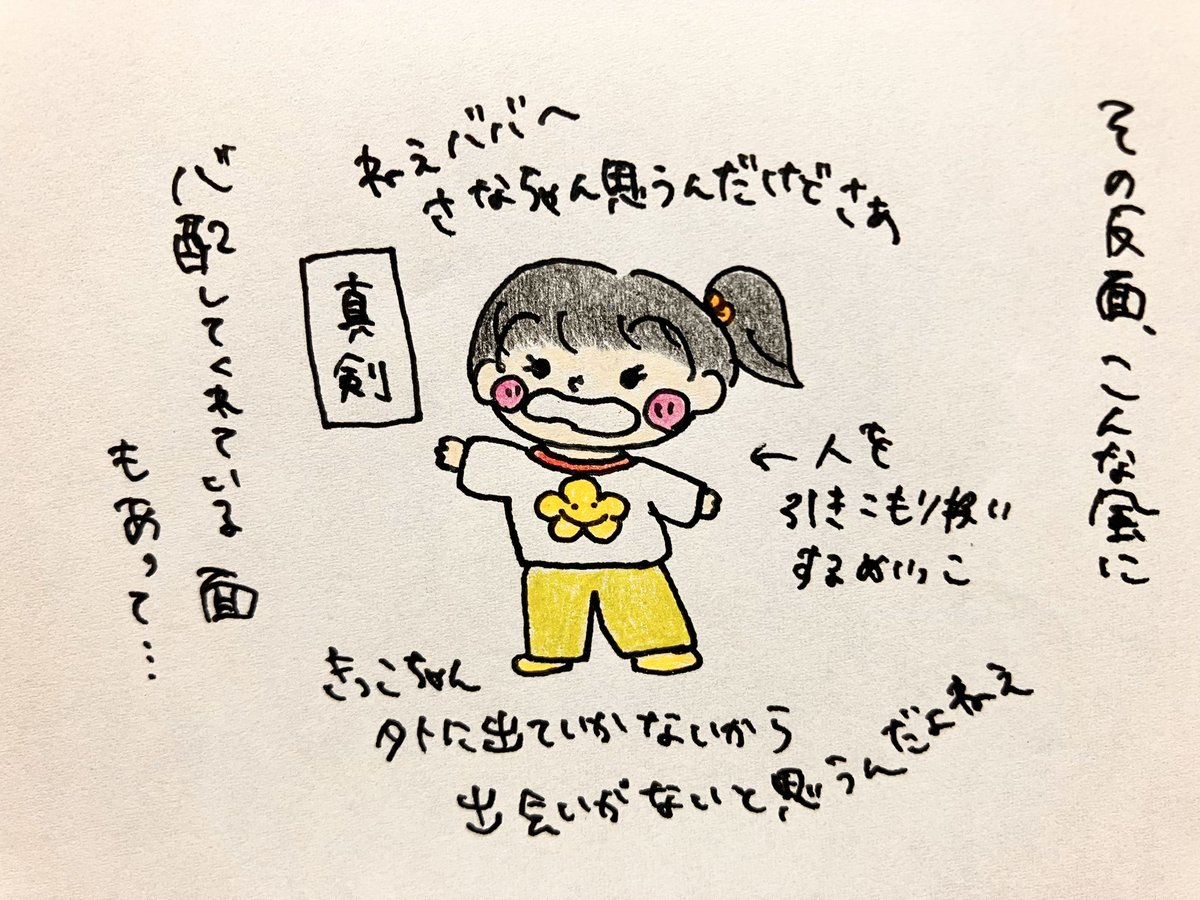 その反面、こんな風に
ねえババ〜
さなちゃん思うんだけどさぁ
真剣
←人を
引きこもり扱い
するめいっこ
きっこちゃん
外に出ていかないから
出会いがないと思うんだよねえ
心配してくれている面
もあって…